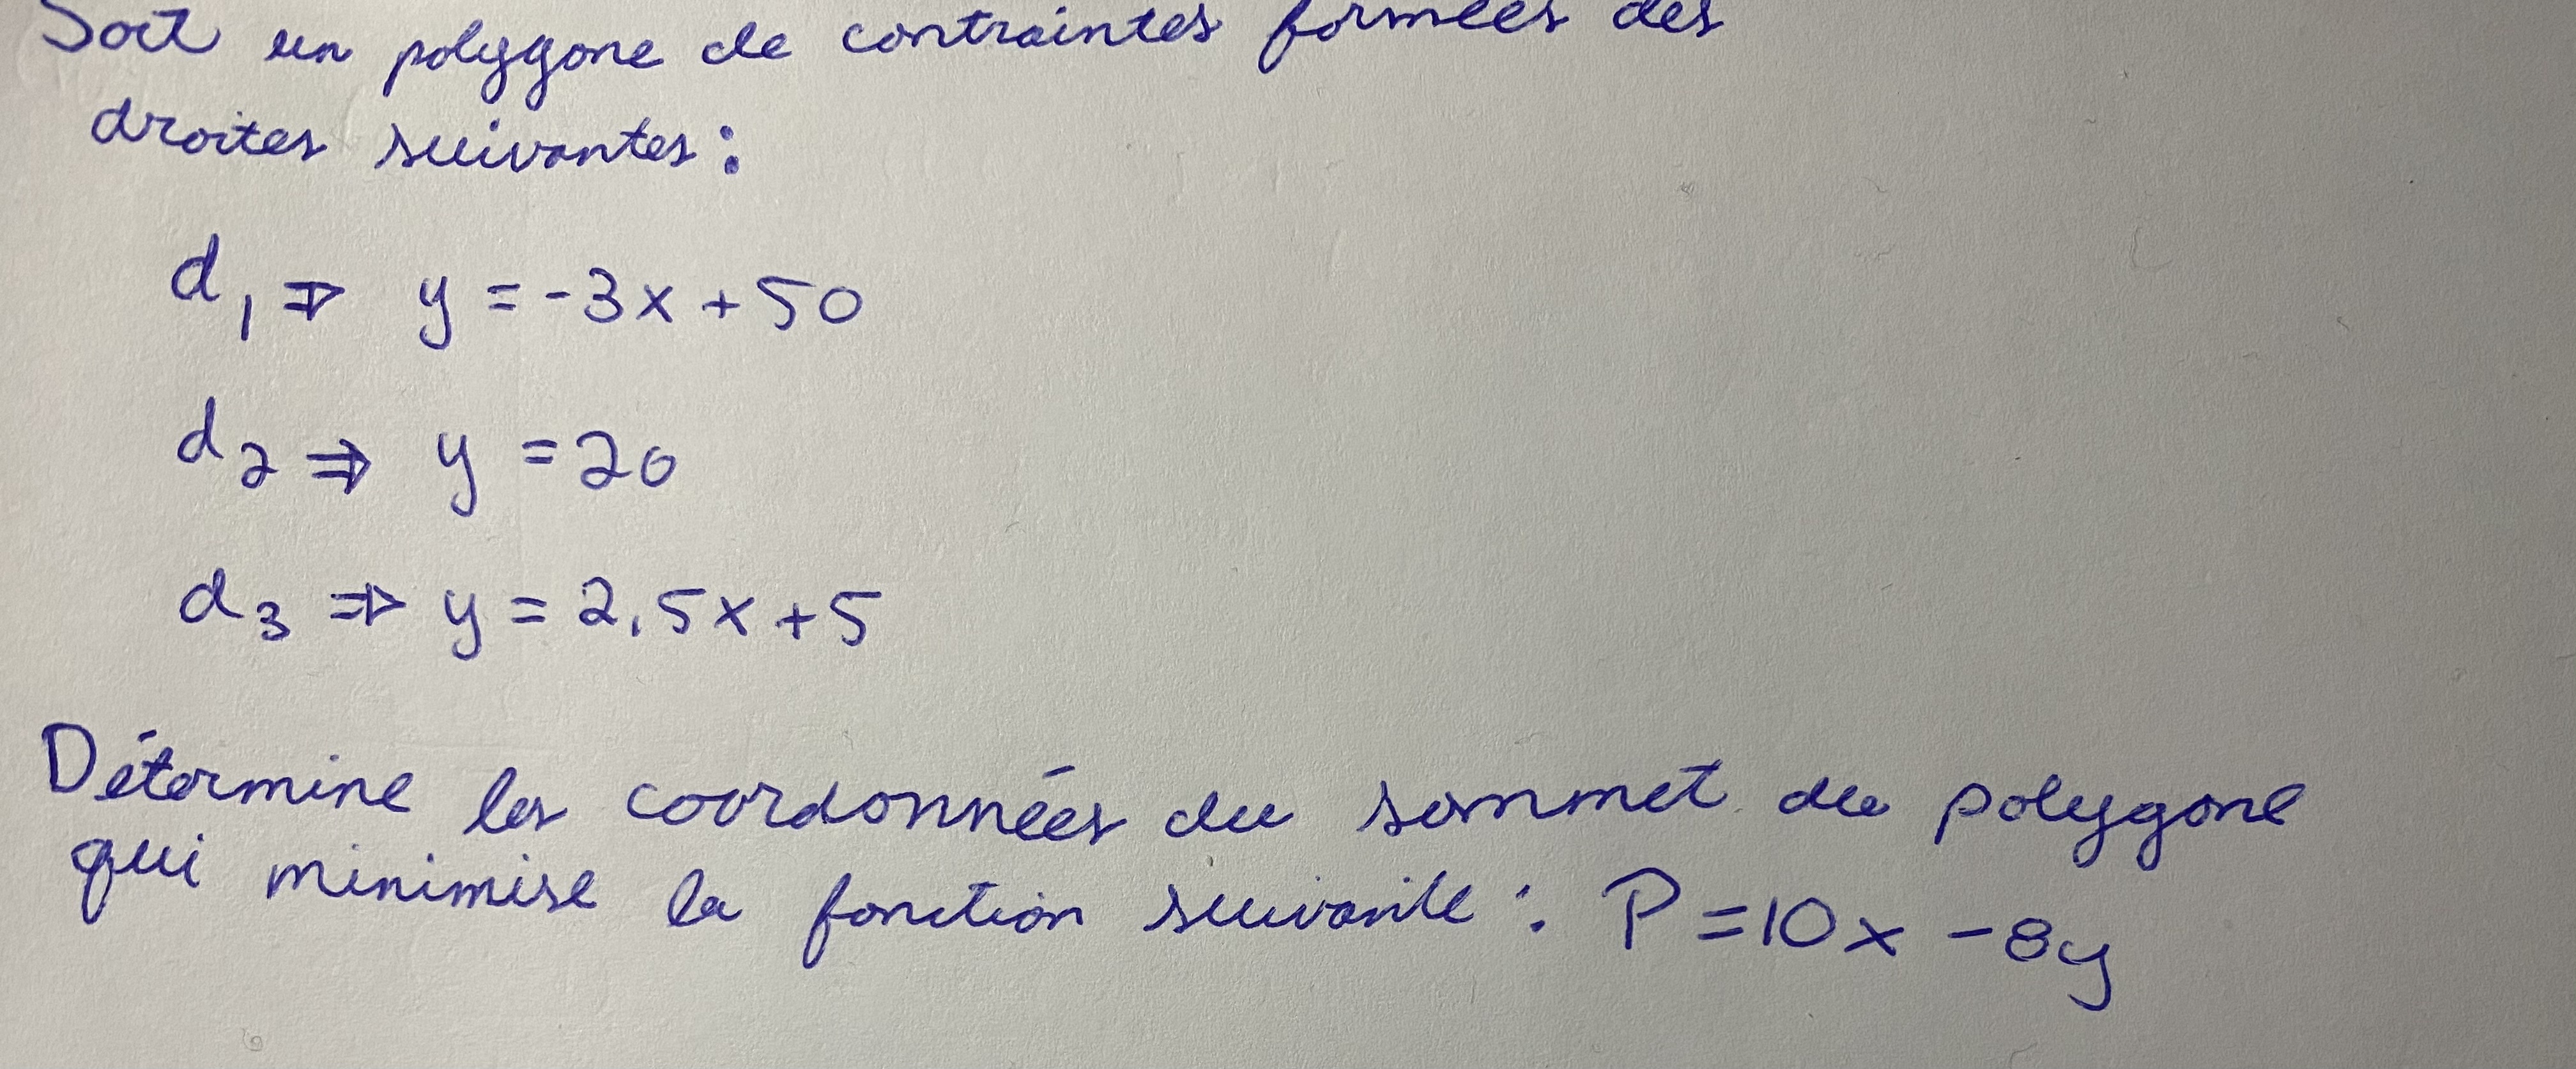 Soit un polygone de contraintes formées des
droites suivantes :
d₁ ⇒ y = -3x + 50
d₂ ⇒ y = 20
d₃ ⇒ y = 2,5x + 5
Détermine les coordonnées du sommet du polygone
qui minimise la fonction suivante : P = 10x - 8y